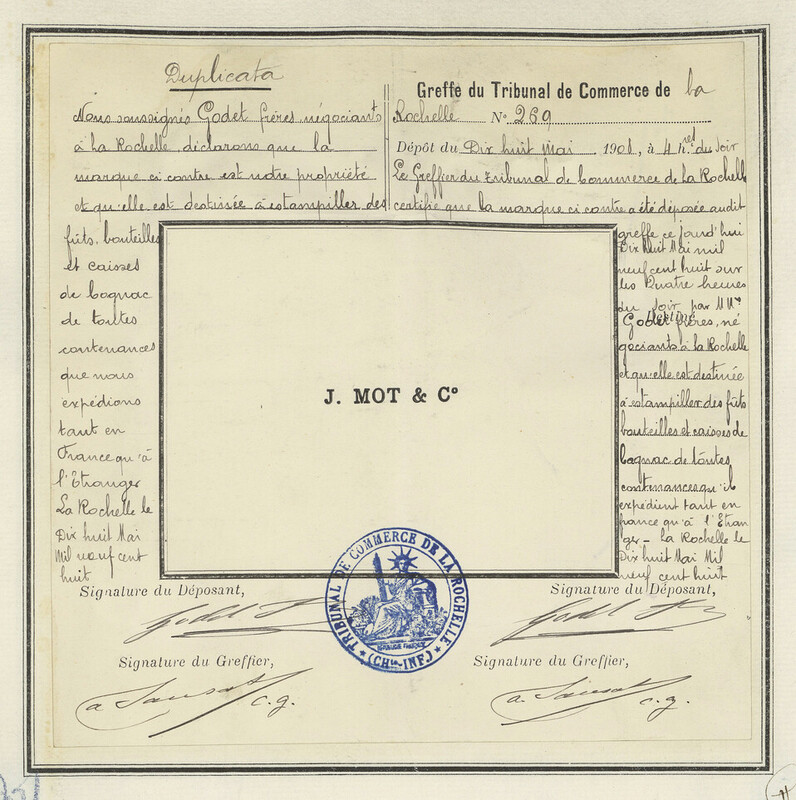 Duplicata
Nous soussignés Godet frères, négociants
à La Rochelle, déclarons que la
marque ci contre est notre propriété
et qu'elle est destinée à estampiller des
fûts, bouteilles
et caisses
de Cognac
de toutes
contenances
que nous
expédions
tant en
France qu'à
l'Etranger
La Rochelle le
Dix huit Mai
Mil neuf cent
huit
Signature du Déposant,
Signature du Greffier,
c.g.
Greffe du Tribunal de Commerce de La
Rochelle N° 269
Dépôt du Dix huit Mai 1908, à 4 hres du soir
Le Greffier du Tribunal de Commerce de La Rochelle
certifie que la marque ci contre a été déposée audit
greffe ce jourd'hui
Dix huit Mai mil
neuf cent huit sur
les Quatre heures
du Soir par MMrs
Godet frères, né
gociants à La Rochelle
et qu'elle est destinée
à estampiller des fûts
bouteilles et caisses de
Cognac de toutes
contenances qu'ils
expédient tant en
france qu'à l'Etran
ger - La Rochelle le
Dix huit Mai Mil
neuf cent huit
Signature du Déposant,
Signature du Greffier,
c.g.
J. MOT & Co
TRIBUNAL DE COMMERCE DE LA ROCHELLE
(CHte-INFre)
REPUBLIQUE FRANÇAISE